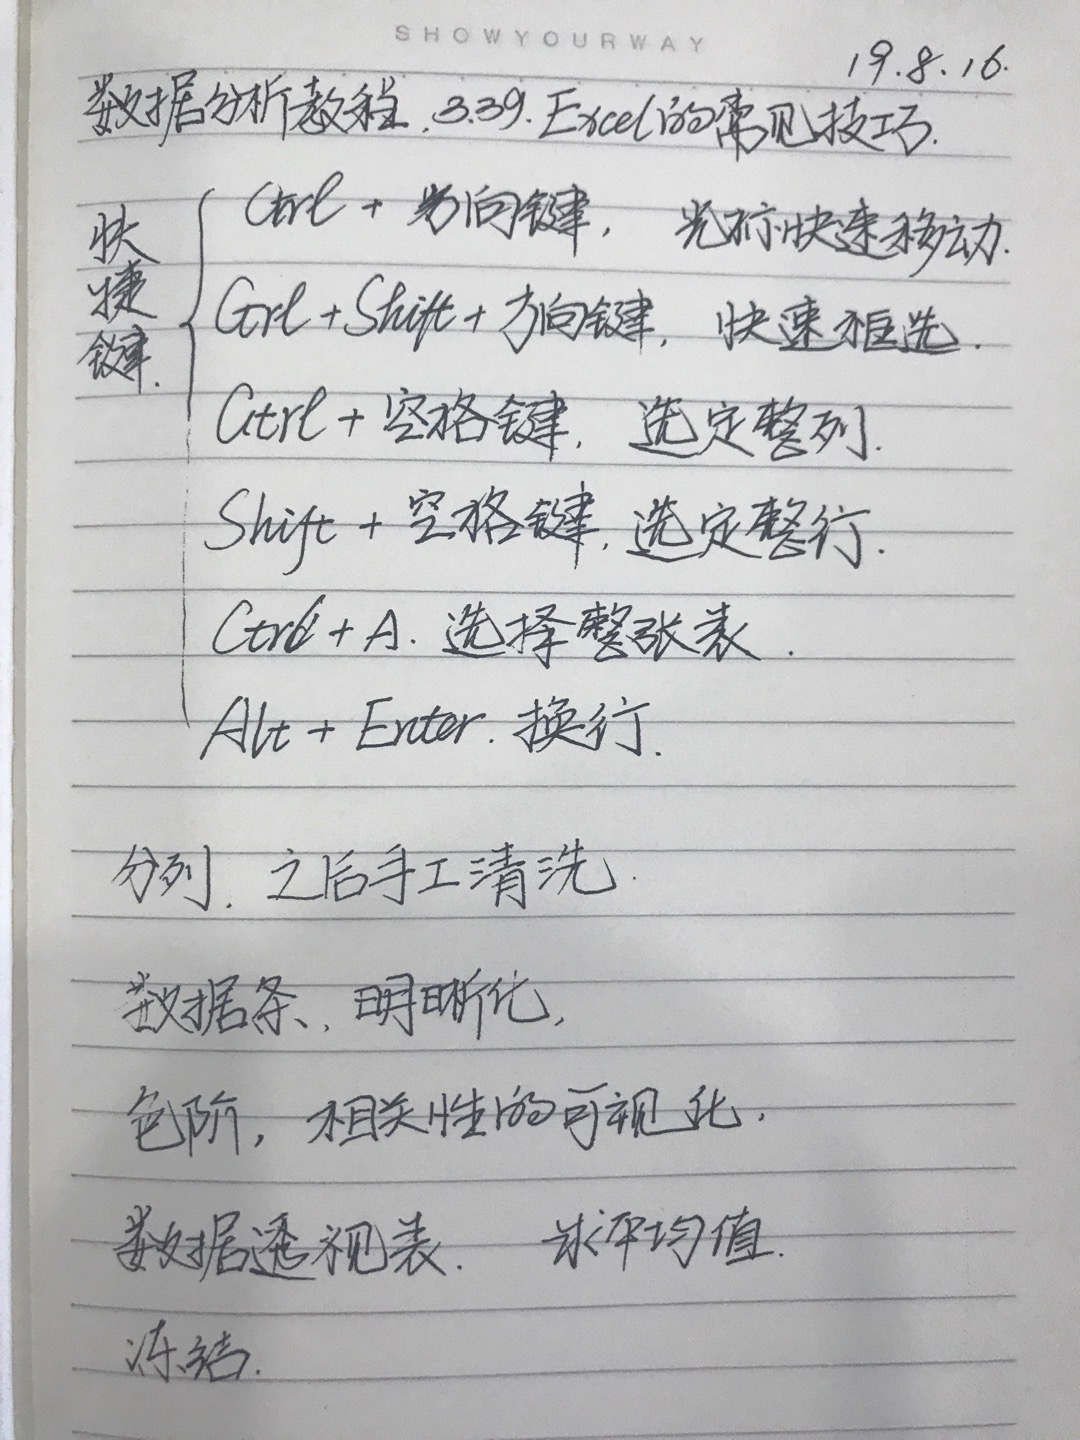 SHOWYOURWAY
19.8.16.
数据分析教程.3.39.Excel的常见技巧.
快捷键.
Ctrl + 方向键, 光标快速移动.
Ctrl + Shift + 方向键, 快速框选.
Ctrl + 空格键, 选定整列.
Shift + 空格键, 选定整行.
Ctrl + A. 选择整张表.
Alt + Enter. 换行.
分列. 之后手工清洗.
数据条、明晰化,
色阶, 相关性的可视化.
数据透视表. 求平均值.
冻结.